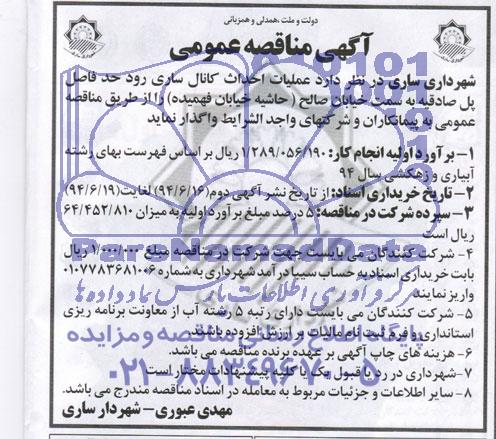 دولت و ملت ،همدلی و همزبانی
آگهی مناقصه عمومی
شهرداری ساری در نظر دارد عملیات احداث کانال ساری رود حد فاصل
پل صادقیه به سمت خیابان صالح (حاشیه خیابان فهمیده) را از طریق مناقصه
عمومی به پیمانکاران و شرکتهای واجد الشرایط واگذار نماید
۱- برآورد اولیه انجام کار: ۱/۲۸۹/۰۵۶/۱۹۰ ریال بر اساس فهرست بهای رشته
آبیاری و زهکشی سال ۹۴
۲- تاریخ خریداری اسناد: از تاریخ نشر آگهی دوم(۹۴/۶/۱۶) لغایت(۹۴/۶/۱۹)
۳- سپرده شرکت در مناقصه: ۵ درصد مبلغ برآورد اولیه به میزان ۶۴/۴۵۲/۸۱۰
ریال است
۴- شرکت کنندگان می بایست جهت شرکت در مناقصه مبلغ ۱/۰۰۰/۰۰۰ ریال
بابت خریداری اسناد به حساب سیبا درآمد شهرداری به شماره ۰۱۰۷۷۸۳۶۸۱۰۰۶
واریز نمایند
۵- شرکت کنندگان می بایست دارای رتبه ۵ رشته آب از معاونت برنامه ریزی
استانداری و فرم ثبت نام مالیات بر ارزش افزوده باشند.
۶- هزینه های چاپ آگهی بر عهده برنده مناقصه می باشد.
۷- شهرداری در رد یا قبول یک یا کلیه پیشنهادات مختار است
۸- سایر اطلاعات و جزئیات مربوط به معامله در اسناد مناقصه مندرج می باشد.
مهدی عبوری - شهردار ساری
ParsNamadData
مرکز فرآوری اطلاعات پارس نماد داده ها
پایگاه اطلاع رسانی مناقصه و مزایده
۰۲۱-۸۸۳۴۹۶۷۰-۵